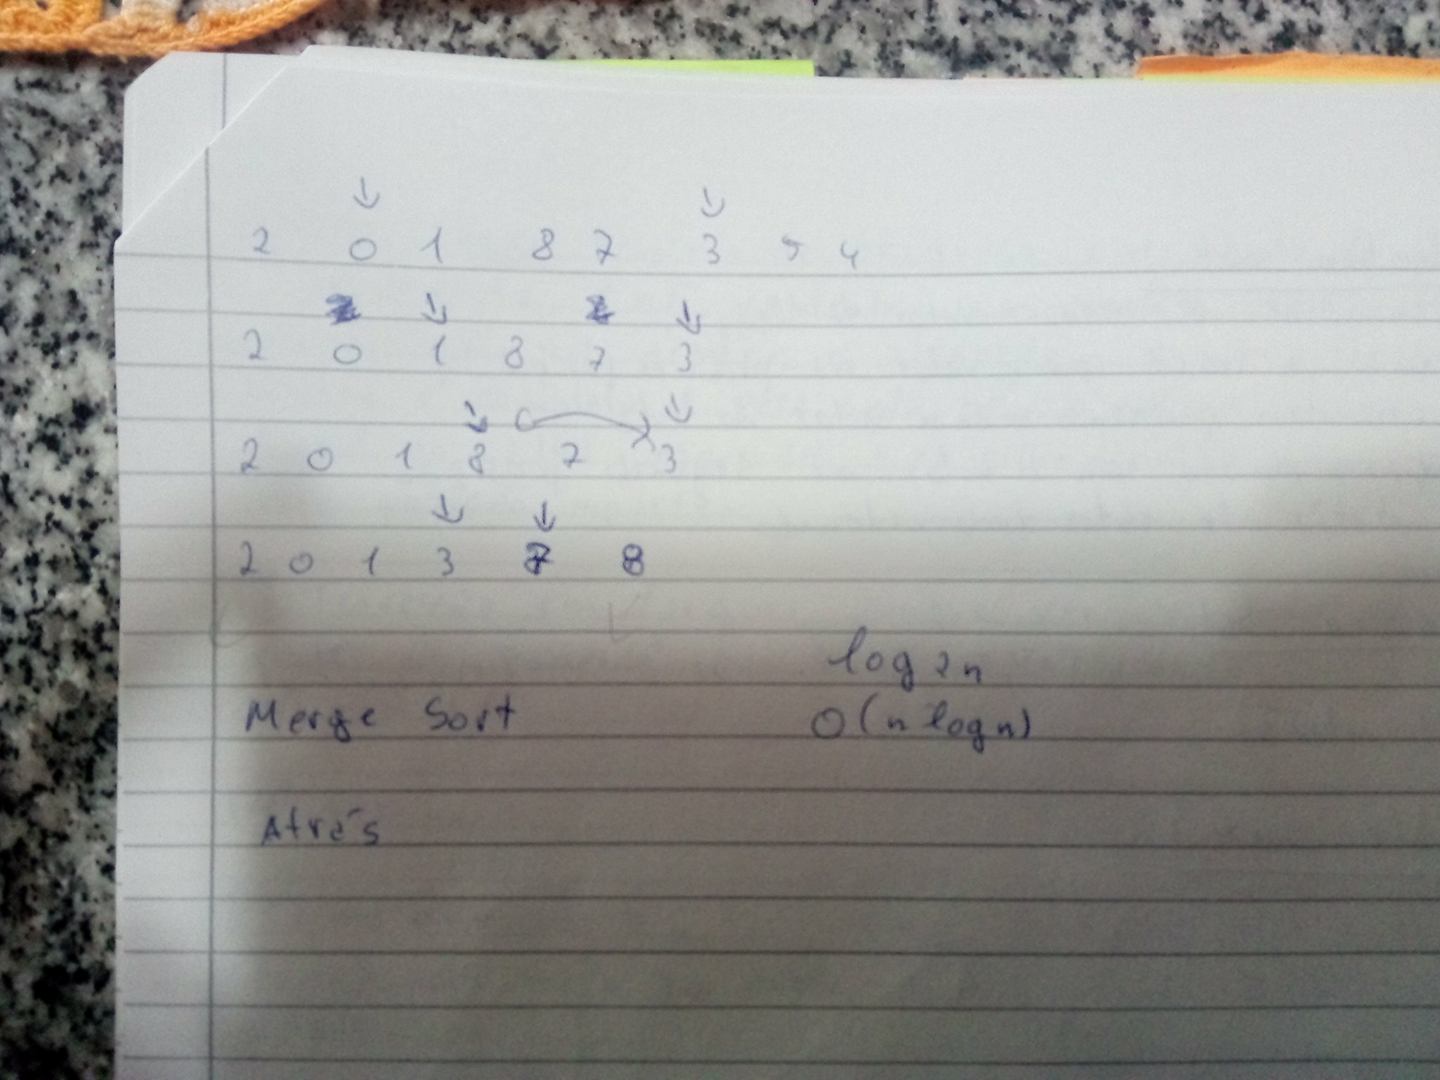 2 0 1 8 7 3 5 4
2 0 1 8 7 3
2 0 1 8 7 3
2 0 1 3 7 8
log 2 n
Merge Sort O(n log n)
Atrás